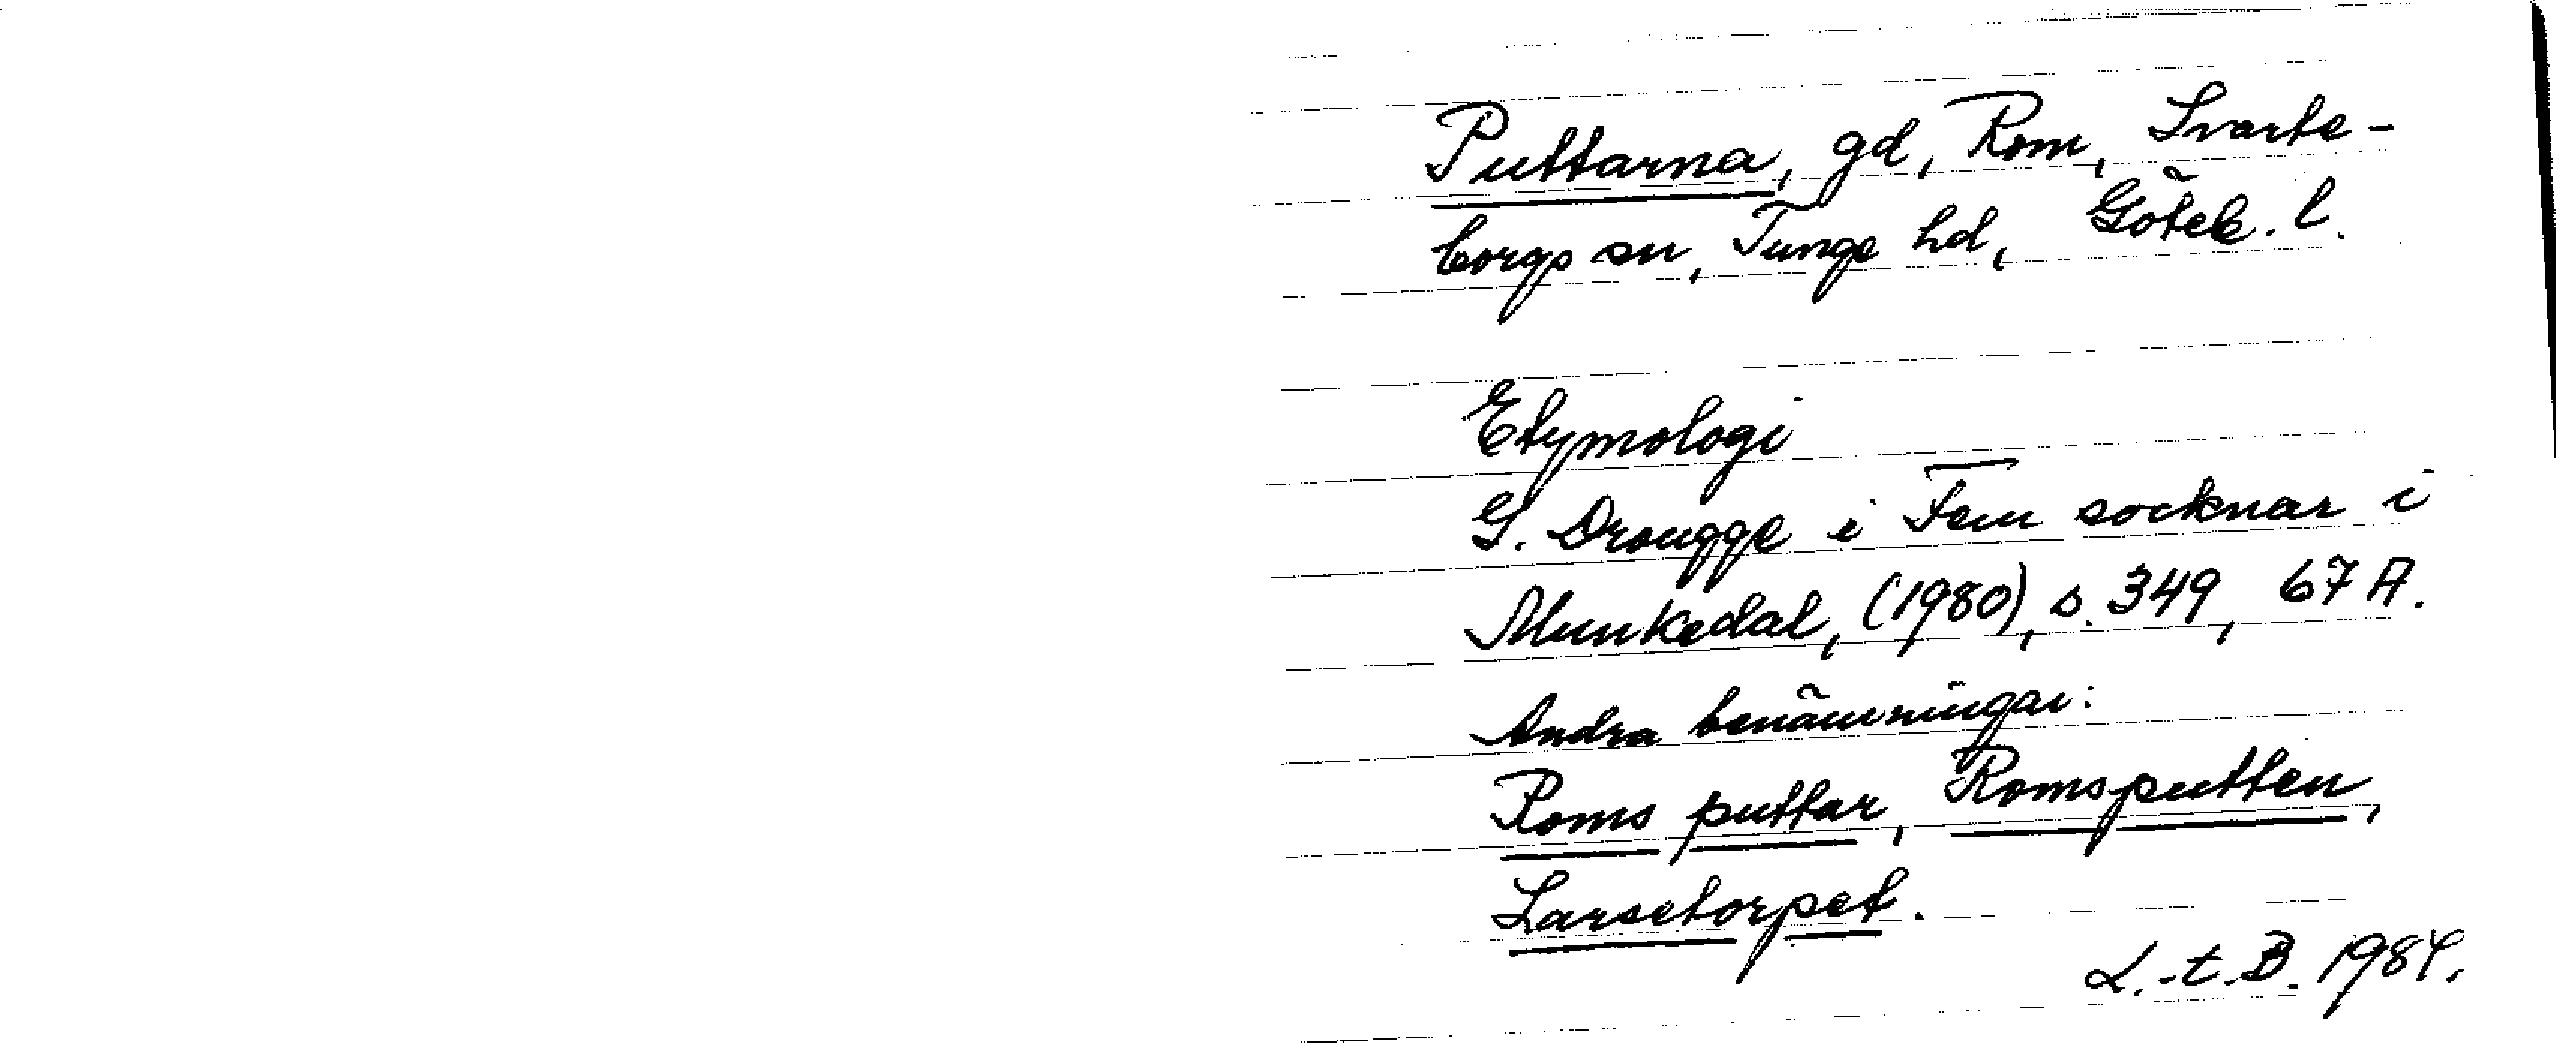 Puttarna, gd, Rom, Svarte-
borgs sn, Tunge hd, Göteb. l.
Etymologi
G. Drougge i Fem socknar i
Munkedal, (1980), s. 349, 67 A.
Andra benämningar:
Roms puttar, Romsputten,
Larsetorpet.
L.-t. B. 1984.